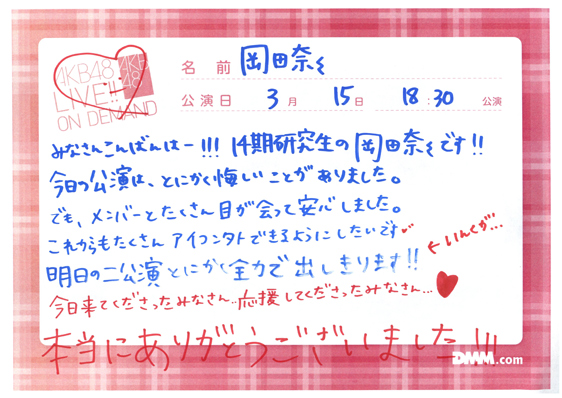 AKB48
LIVE!!
ON DEMAND
AKB
48
名前 岡田奈々
公演日 3月 15日 18:30 公演
みなさんこんばんはー!!! 14期研究生の岡田奈々です!!
今日の公演は、とにかく悔しいことがありました。
でも、メンバーとたくさん目が会って安心しました。
これからもたくさん アイコンタトできるようにしたいです♥
←いんくが...
明日の二公演とにかく全力で出しきります!!
今日来てくださったみなさん..応援してくださったみなさん...♥
本当にありがとうございました!!!
DMM.com